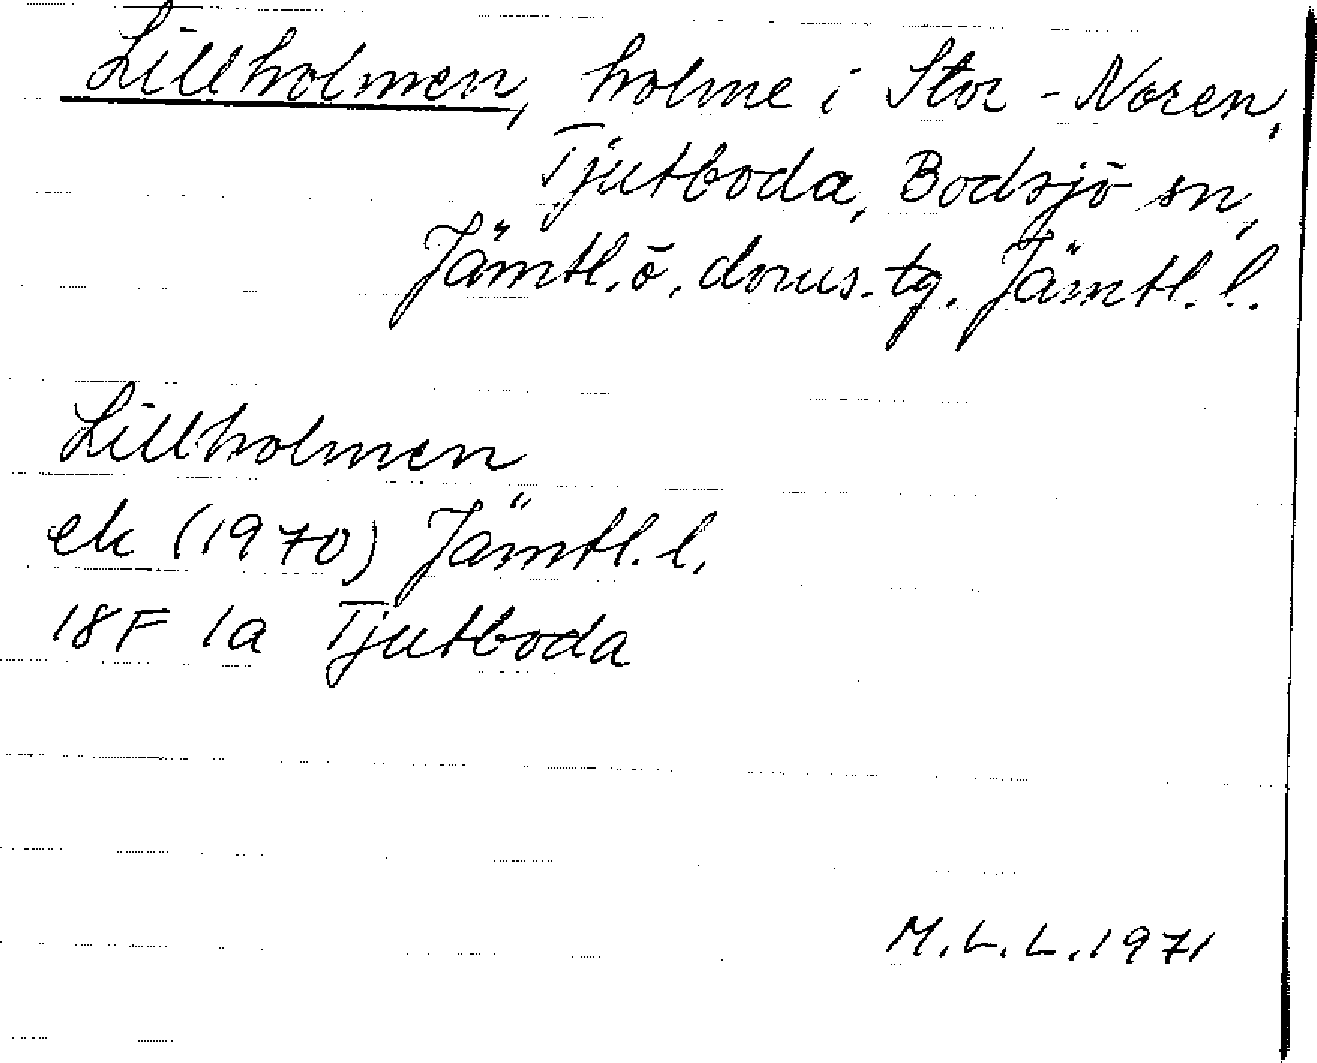 Lillholmen, holme i Stor-Noren,
Tjutboda, Bodsjö sn,
Jämtl. ö. doms. tg. Jämtl. l.
Lillholmen
ek (1970) Jämtl. l.
18F 1a Tjutboda
M.L.L. 1971